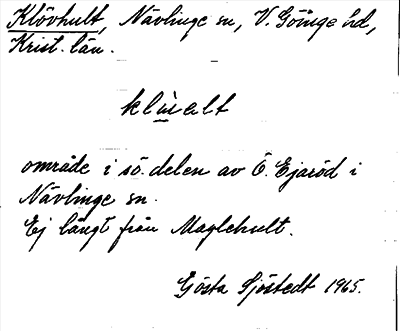 Klövhult, Nävlinge sn, V. Göinge hd,
Krist. län.
klùalt
område i sö. delen av Ö. Ejaröd i
Nävlinge sn.
Ej långt från Maglehult.
Gösta Sjöstedt 1965.